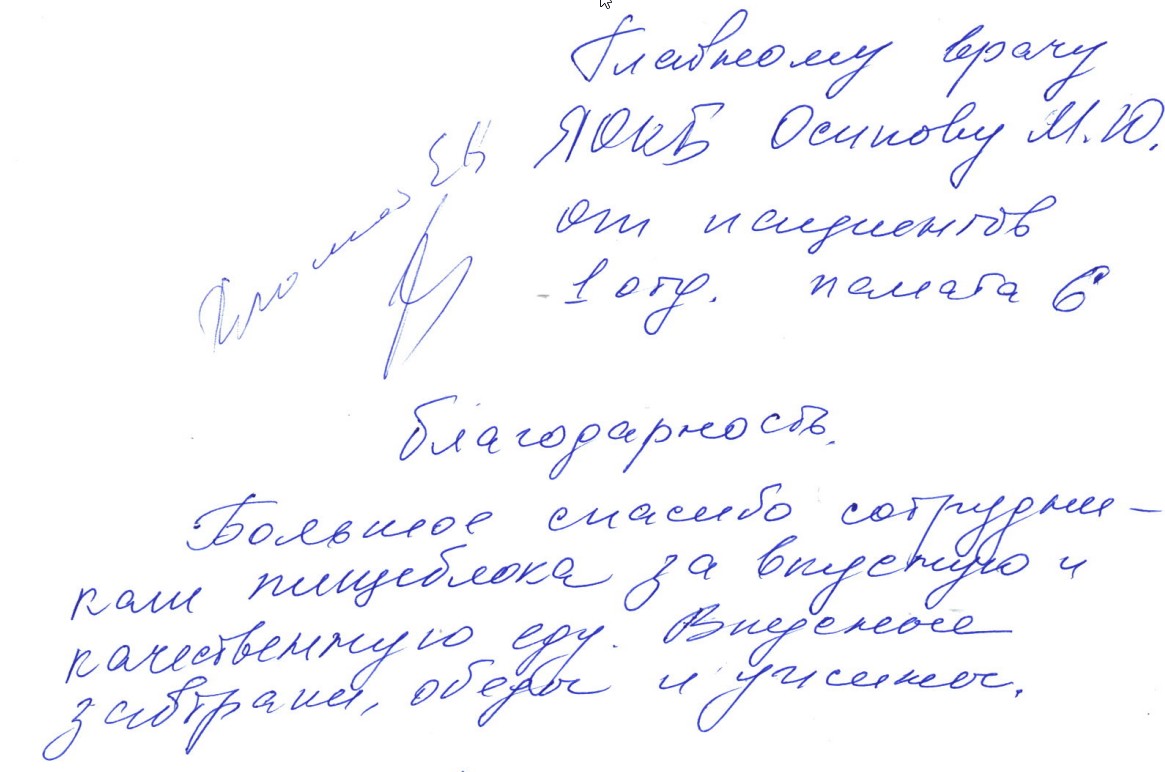 Главному врачу
ЯОКБ Осипову М.Ю.
от пациентов
1 отд. палата 6
Благодарность.
Большое спасибо сотрудни-
кам пищеблока за вкусную и
качественную еду. Вкусные
завтраки, обеды и ужины.